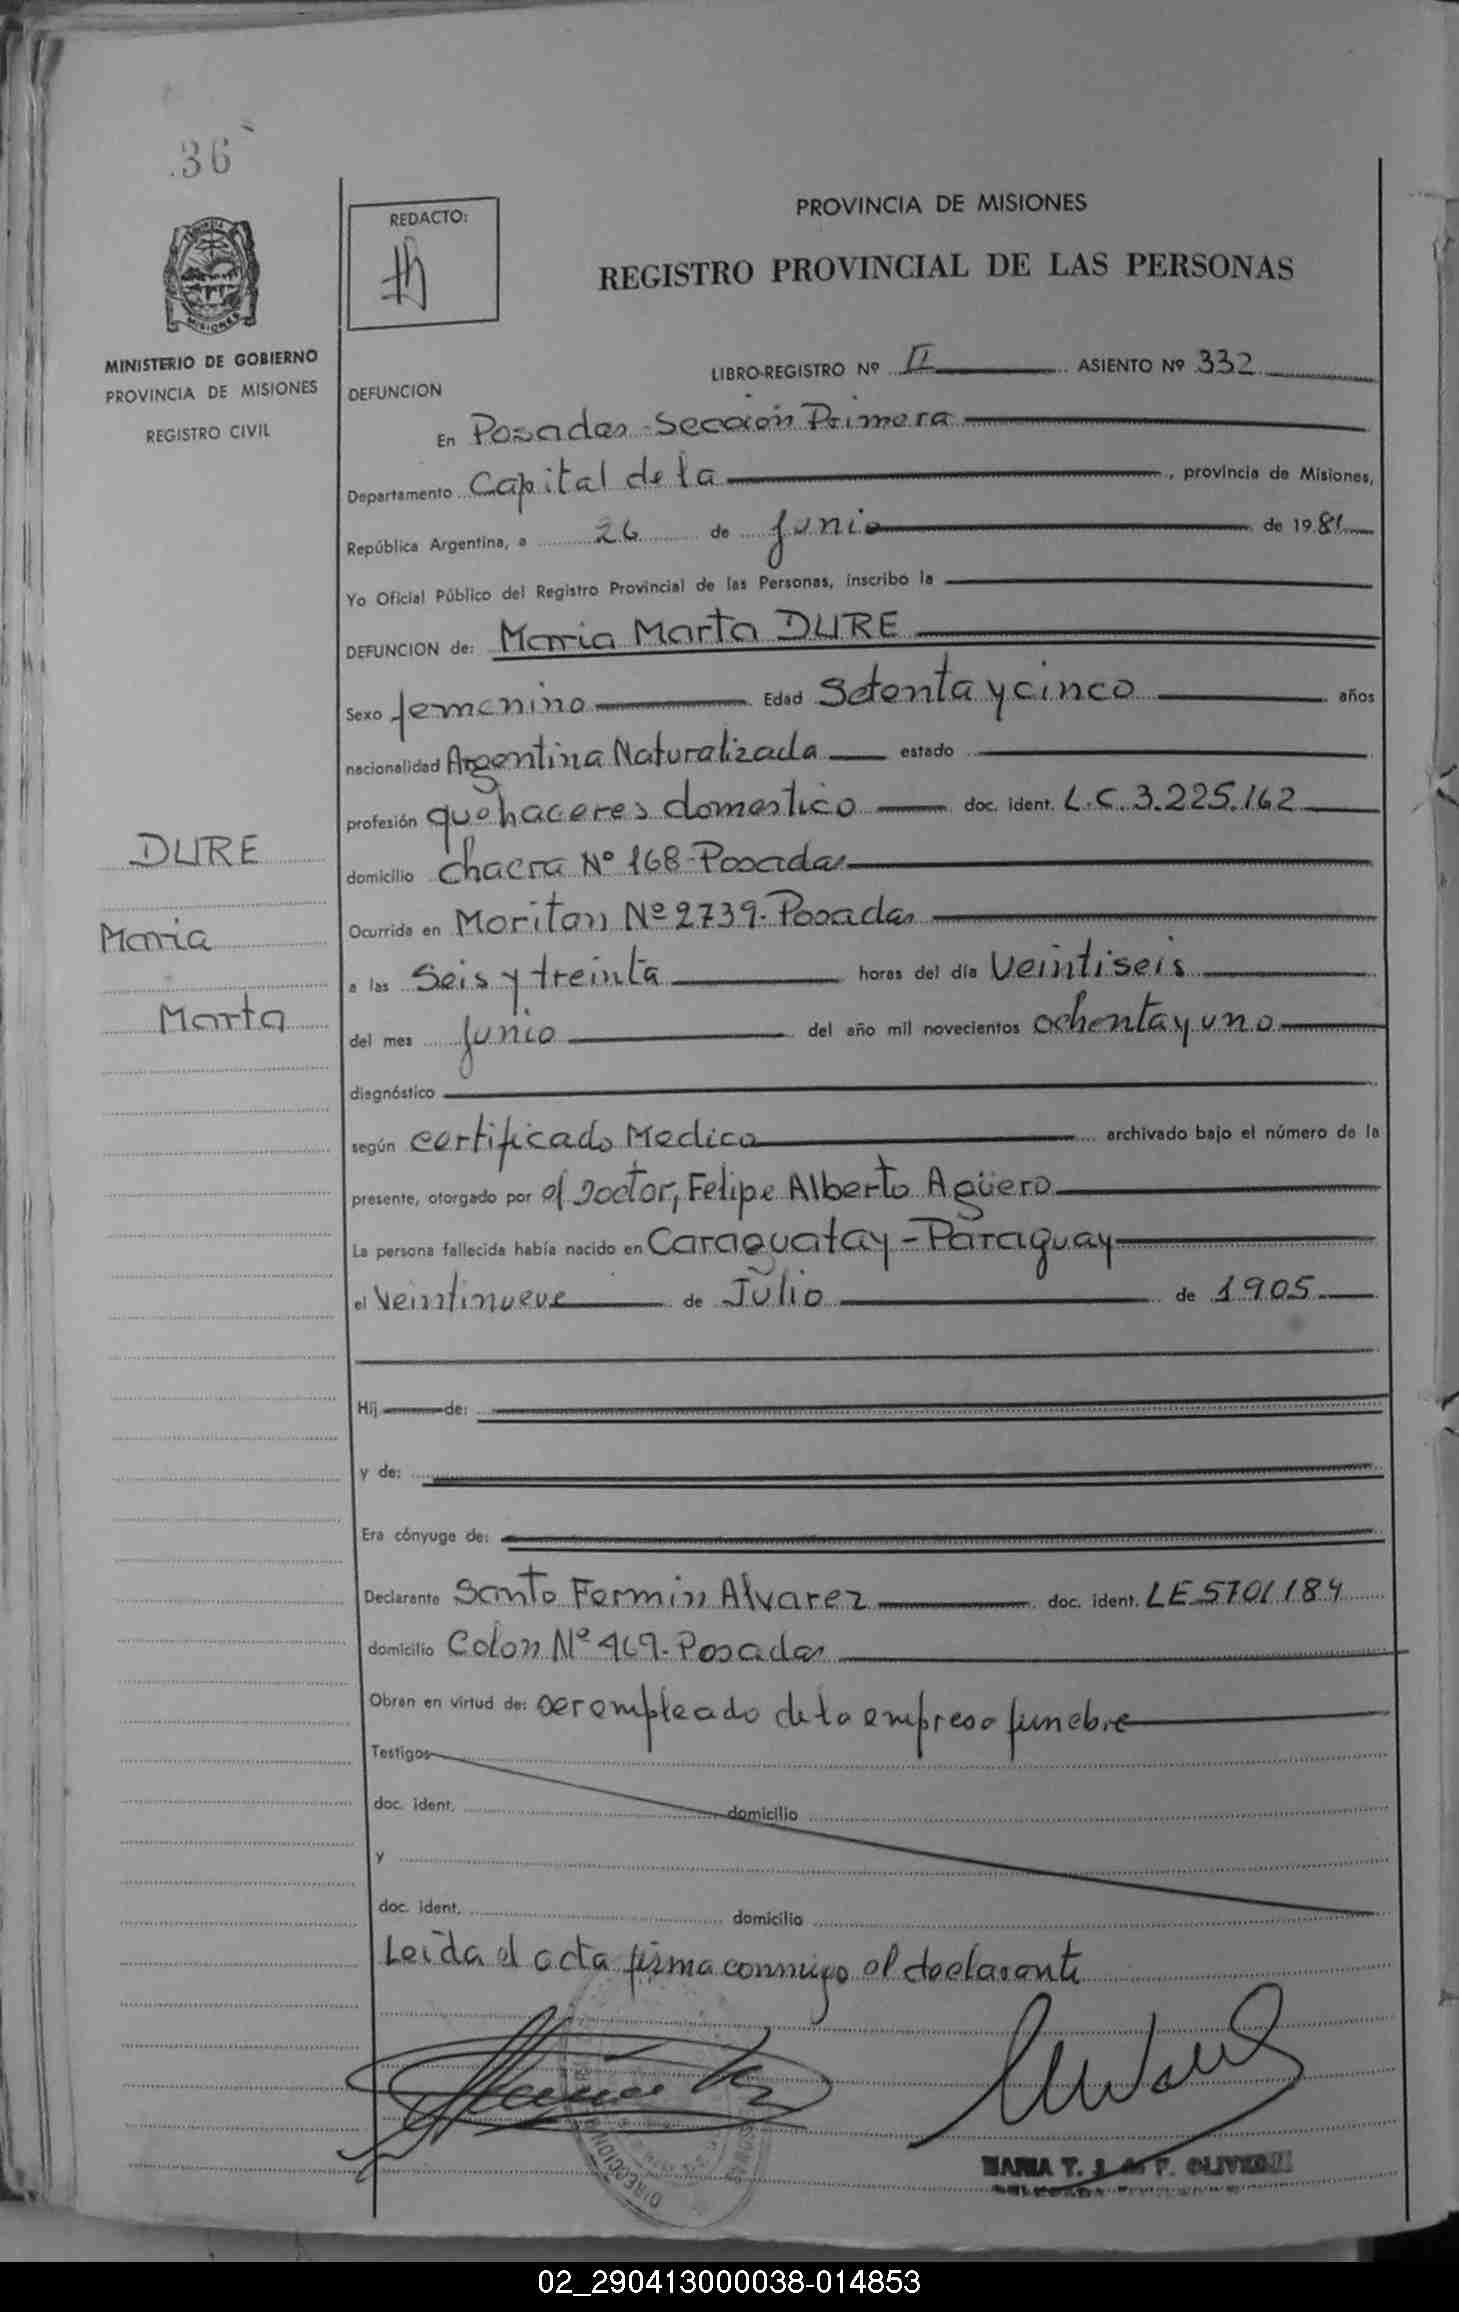 36
PROVINCIA DE MISIONES
REDACTO:
REGISTRO PROVINCIAL DE LAS PERSONAS
MISIONES
MINISTERIO DE GOBIERNO
PROVINCIA DE MISIONES
REGISTRO CIVIL
LIBRO-REGISTRO Nº II ASIENTO Nº 332
DEFUNCION
En Posadas-Sección Primera
Departamento Capital de la , provincia de Misiones,
República Argentina, a 26 de Junio de 1981
Yo Oficial Público del Registro Provincial de las Personas, inscribo la
DEFUNCION de: Maria Marta DURE
Sexo femenino Edad Setenta y cinco años
nacionalidad Argentina Naturalizada estado
profesión quehaceres domestico doc. ident. L.C. 3.225.162
DURE
domicilio Chacra Nº 168-Posadas
Maria
Ocurrida en Moritan Nº 2739-Posadas
a las Seis y treinta horas del día Veintiseis
Marta
del mes Junio del año mil novecientos ochenta y uno
diagnóstico
según certificado Medico archivado bajo el número de la
presente, otorgado por el Doctor, Felipe Alberto Agüero
La persona fallecida había nacido en Caraguatay-Paraguay
el Veintinueve de Julio de 1905
Hij de:
y de:
Era cónyuge de:
Declarante Santo Fermin Alvarez doc. ident. LE 5701184
domicilio Colon Nº 469-Posadas
Obran en virtud de: ser empleado de la empresa funebre
Testigos
doc. ident. domicilio
y
doc. ident. domicilio
Leida el acta firma conmigo el declarante
DIRECCION
MARIA T. OLIVERI
02_290413000038-014853